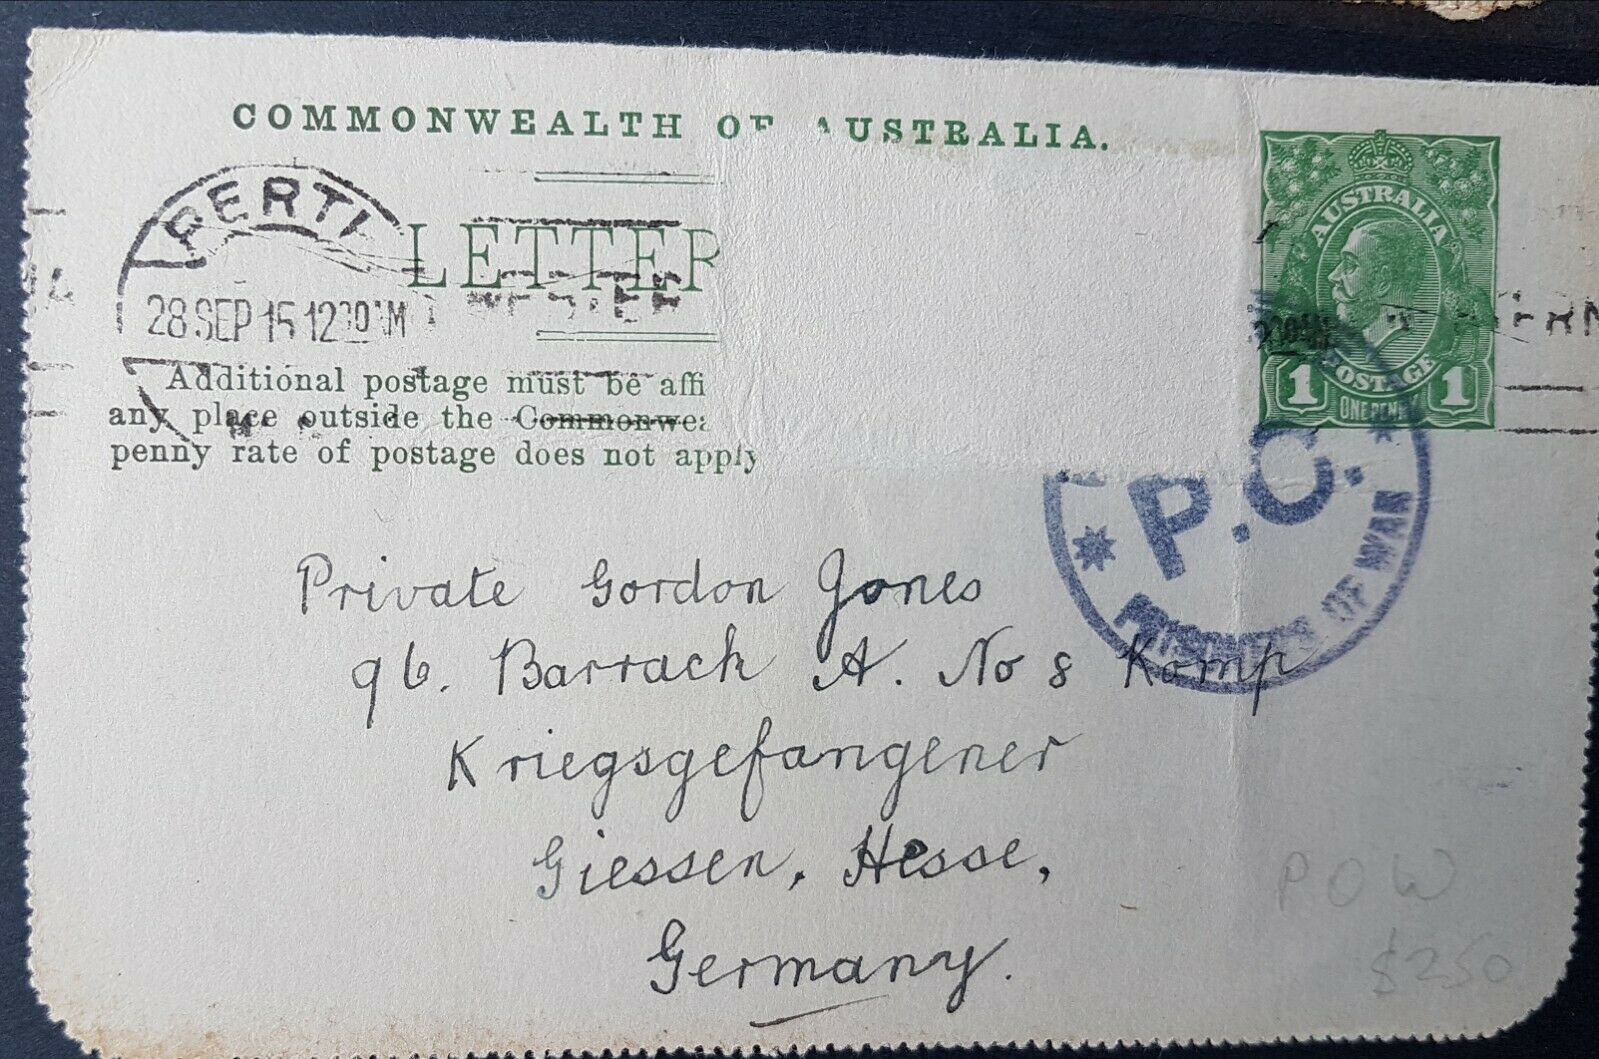 COMMONWEALTH OF AUSTRALIA.
PERTH
LETTER
28 SEP 15 12
AUSTRALIA
POSTAGE
1 ONE PENNY 1
Additional postage must be affi
any place outside the Commonwea
penny rate of postage does not apply
P.C.
PRISONERS OF WAR
Private Gordon Jones
96. Barrack A. No 8 Kamp
Kriegsgefangener
Giessen, Hesse,
Germany.
POW
$250